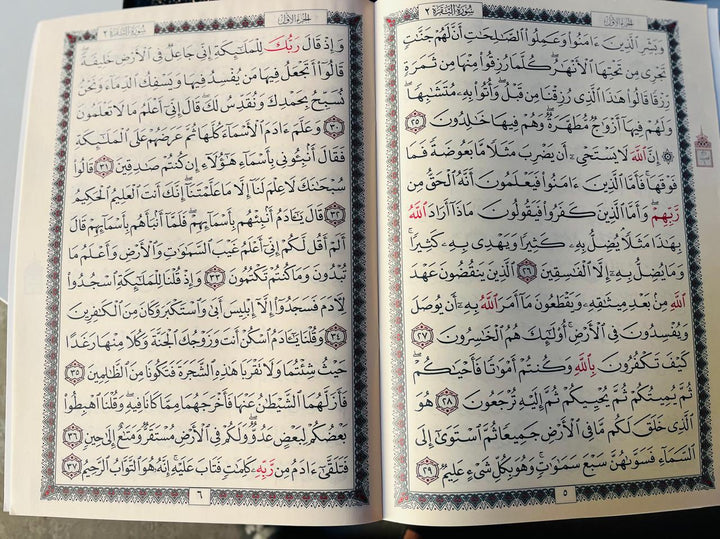 سُورَةُ البَقَرَة ٢
الجزء الأول
وَبَشِّرِ ٱلَّذِينَ ءَامَنُوا۟ وَعَمِلُوا۟ ٱلصَّـٰلِحَـٰتِ أَنَّ لَهُمْ جَنَّـٰتٍ
تَجْرِى مِن تَحْتِهَا ٱلْأَنْهَـٰرُ ۖ كُلَّمَا رُزِقُوا۟ مِنْهَا مِن ثَمَرَةٍ
رِّزْقًا قَالُوا۟ هَـٰذَا ٱلَّذِى رُزِقْنَا مِن قَبْلُ ۖ وَأُتُوا۟ بِهِۦ مُتَشَـٰبِهًا ۖ
وَلَهُمْ فِيهَآ أَزْوَٰجٌ مُّطَهَّرَةٌ ۖ وَهُمْ فِيهَا خَـٰلِدُونَ ٢٥
۞ إِنَّ ٱللَّهَ لَا يَسْتَحْىِۦٓ أَن يَضْرِبَ مَثَلًا مَّا بَعُوضَةً فَمَا
فَوْقَهَا ۚ فَأَمَّا ٱلَّذِينَ ءَامَنُوا۟ فَيَعْلَمُونَ أَنَّهُ ٱلْحَقُّ مِن
رَّبِّهِمْ ۖ وَأَمَّا ٱلَّذِينَ كَفَرُوا۟ فَيَقُولُونَ مَاذَآ أَرَادَ ٱللَّهُ
بِهَـٰذَا مَثَلًا ۘ يُضِلُّ بِهِۦ كَثِيرًا وَيَهْدِى بِهِۦ كَثِيرًا ۚ
وَمَا يُضِلُّ بِهِۦٓ إِلَّا ٱلْفَـٰسِقِينَ ٢٦ ٱلَّذِينَ يَنقُضُونَ عَهْدَ
ٱللَّهِ مِنۢ بَعْدِ مِيثَـٰقِهِۦ وَيَقْطَعُونَ مَآ أَمَرَ ٱللَّهُ بِهِۦٓ أَن يُوصَلَ
وَيُفْسِدُونَ فِى ٱلْأَرْضِ ۚ أُو۟لَـٰٓئِكَ هُمُ ٱلْخَـٰسِرُونَ ٢٧
كَيْفَ تَكْفُرُونَ بِٱللَّهِ وَكُنتُمْ أَمْوَٰتًا فَأَحْيَـٰكُمْ ۖ
ثُمَّ يُمِيتُكُمْ ثُمَّ يُحْيِيكُمْ ثُمَّ إِلَيْهِ تُرْجَعُونَ ٢٨ هُوَ
ٱلَّذِى خَلَقَ لَكُم مَّا فِى ٱلْأَرْضِ جَمِيعًا ثُمَّ ٱسْتَوَىٰٓ إِلَى
ٱلسَّمَآءِ فَسَوَّىٰهُنَّ سَبْعَ سَمَـٰوَٰتٍ ۚ وَهُوَ بِكُلِّ شَىْءٍ عَلِيمٌ ٢٩
٥
الجزء الأول
سُورَةُ البَقَرَة ٢
وَإِذْ قَالَ رَبُّكَ لِلْمَلَـٰٓئِكَةِ إِنِّى جَاعِلٌ فِى ٱلْأَرْضِ خَلِيفَةً ۖ
قَالُوٓا۟ أَتَجْعَلُ فِيهَا مَن يُفْسِدُ فِيهَا وَيَسْفِكُ ٱلدِّمَآءَ وَنَحْنُ
نُسَبِّحُ بِحَمْدِكَ وَنُقَدِّسُ لَكَ ۖ قَالَ إِنِّىٓ أَعْلَمُ مَا لَا تَعْلَمُونَ
٣٠ وَعَلَّمَ ءَادَمَ ٱلْأَسْمَآءَ كُلَّهَا ثُمَّ عَرَضَهُمْ عَلَى ٱلْمَلَـٰٓئِكَةِ
فَقَالَ أَنۢبِـُٔونِى بِأَسْمَآءِ هَـٰٓؤُلَآءِ إِن كُنتُمْ صَـٰدِقِينَ ٣١ قَالُوا۟
سُبْحَـٰنَكَ لَا عِلْمَ لَنَآ إِلَّا مَا عَلَّمْتَنَآ ۖ إِنَّكَ أَنتَ ٱلْعَلِيمُ ٱلْحَكِيمُ
٣٢ قَالَ يَـٰٓـَٔادَمُ أَنۢبِئْهُم بِأَسْمَآئِهِمْ ۖ فَلَمَّآ أَنۢبَأَهُم بِأَسْمَآئِهِمْ قَالَ
أَلَمْ أَقُل لَّكُمْ إِنِّىٓ أَعْلَمُ غَيْبَ ٱلسَّمَـٰوَٰتِ وَٱلْأَرْضِ وَأَعْلَمُ مَا
تُبْدُونَ وَمَا كُنتُمْ تَكْتُمُونَ ٣٣ وَإِذْ قُلْنَا لِلْمَلَـٰٓئِكَةِ ٱسْجُدُوا۟
لِـَٔادَمَ فَسَجَدُوٓا۟ إِلَّآ إِبْلِيسَ أَبَىٰ وَٱسْتَكْبَرَ وَكَانَ مِنَ ٱلْكَـٰفِرِينَ
٣٤ وَقُلْنَا يَـٰٓـَٔادَمُ ٱسْكُنْ أَنتَ وَزَوْجُكَ ٱلْجَنَّةَ وَكُلَا مِنْهَا رَغَدًا
حَيْثُ شِئْتُمَا وَلَا تَقْرَبَا هَـٰذِهِ ٱلشَّجَرَةَ فَتَكُونَا مِنَ ٱلظَّـٰلِمِينَ ٣٥
فَأَزَلَّهُمَا ٱلشَّيْطَـٰنُ عَنْهَا فَأَخْرَجَهُمَا مِمَّا كَانَا فِيهِ ۖ وَقُلْنَا ٱهْبِطُوا۟
بَعْضُكُمْ لِبَعْضٍ عَدُوٌّ ۖ وَلَكُمْ فِى ٱلْأَرْضِ مُسْتَقَرٌّ وَمَتَـٰعٌ إِلَىٰ حِينٍ ٣٦
فَتَلَقَّىٰٓ ءَادَمُ مِن رَّبِّهِۦ كَلِمَـٰتٍ فَتَابَ عَلَيْهِ ۚ إِنَّهُۥ هُوَ ٱلتَّوَّابُ ٱلرَّحِيمُ ٣٧
٦